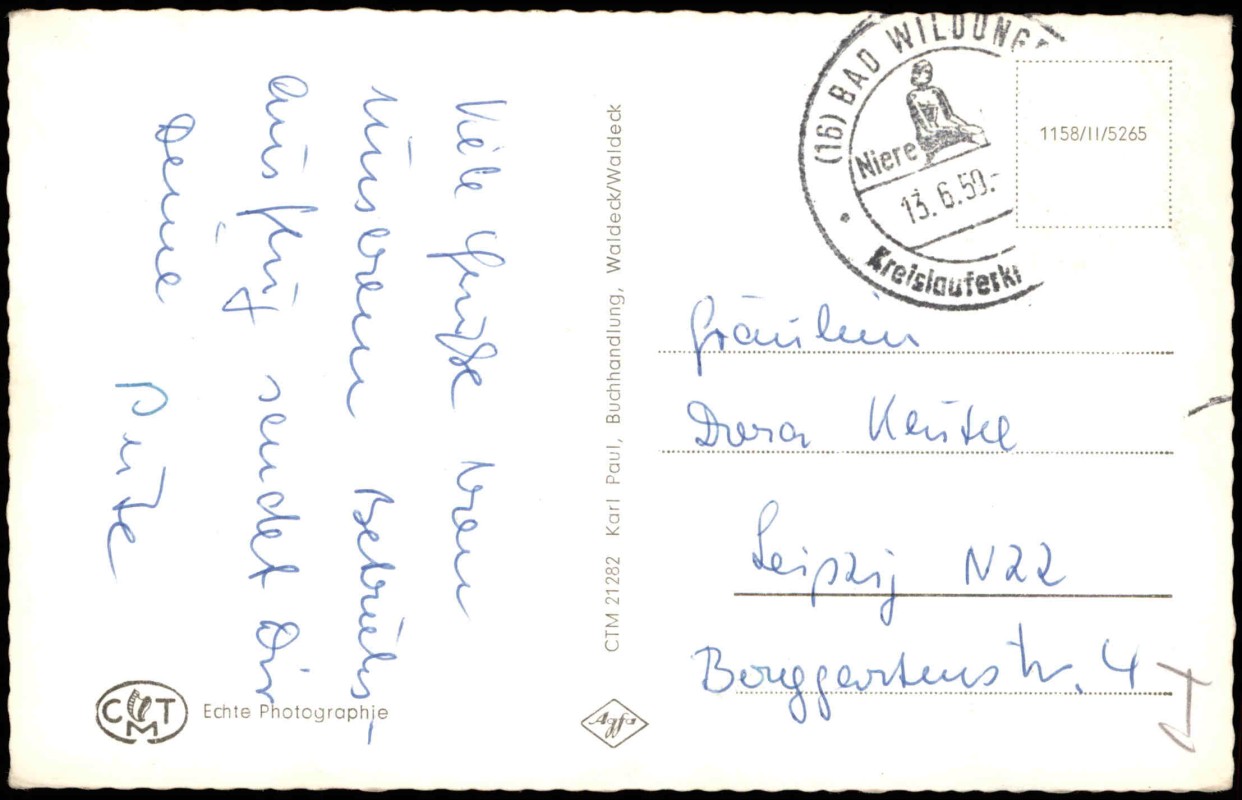 Viele Grüße von
unserem Betriebs-
ausflug sendet Dir
Deine
CTM 21282 Karl Paul, Buchhandlung, Waldeck/Waldeck
CTM
Echte Photographie
Agfa
(16) BAD WILDUNGE
Niere
13.6.59.-
Kreislauferkr
1158/II/5265
Fräulein
Dora Keutel
Leipzig N22
Berggartenstr. 4